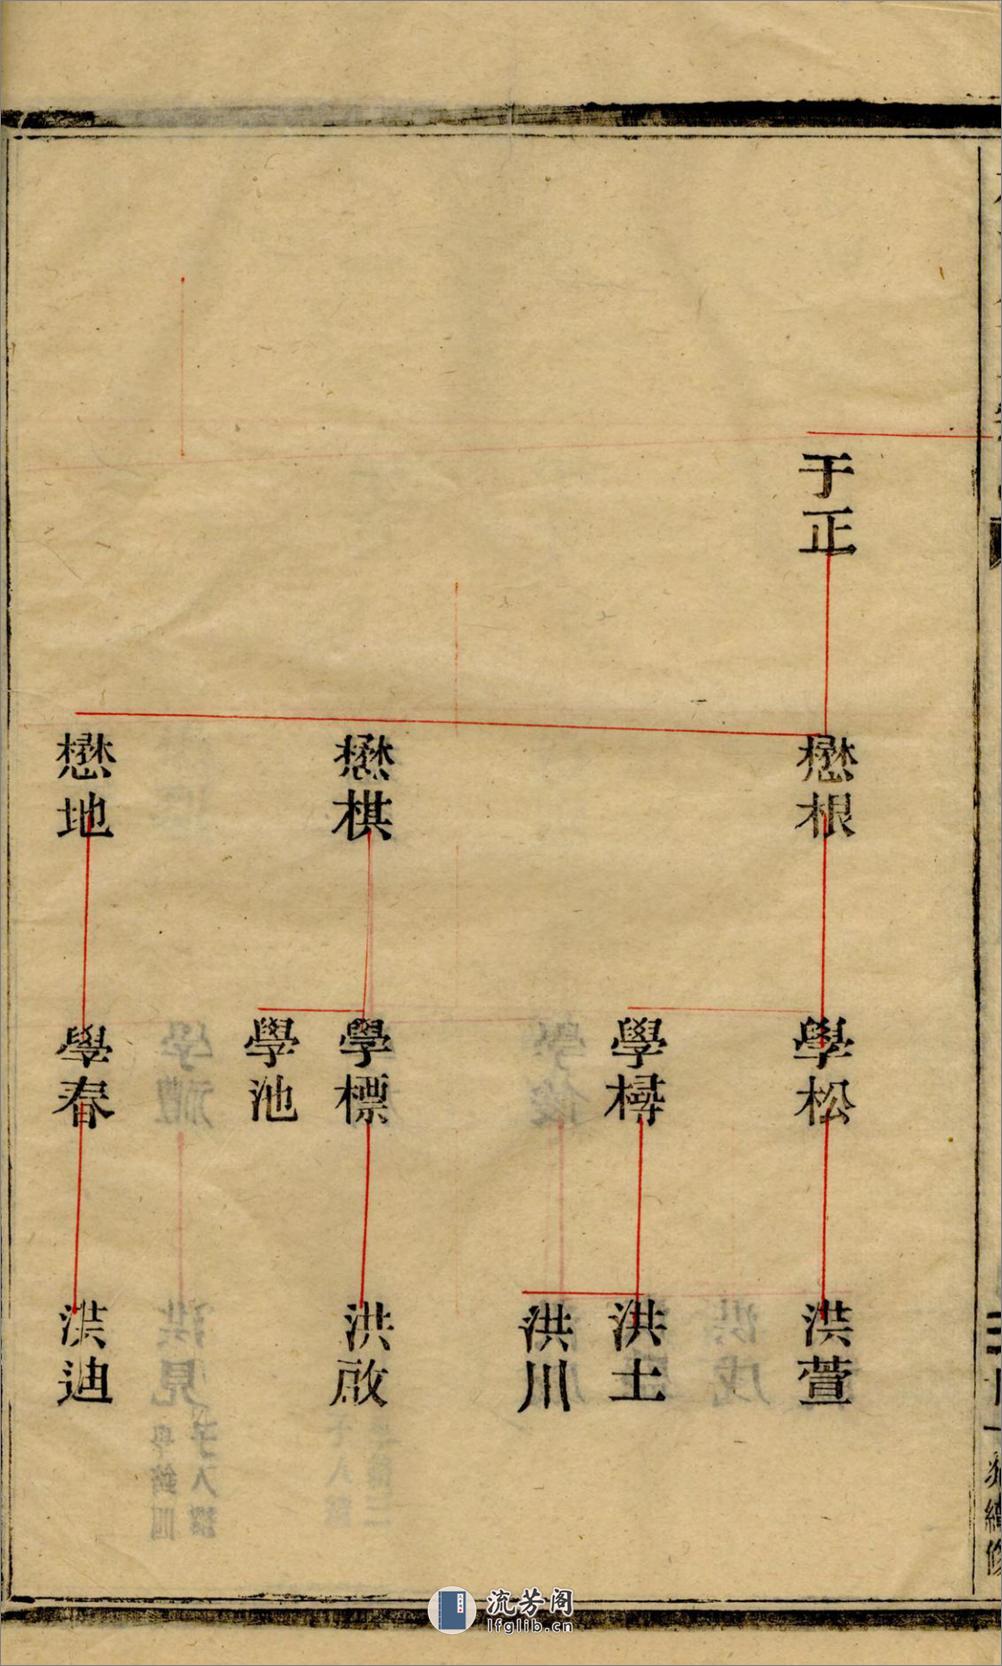 于正
懋根
懋棋
懋地
學松
學樳
學標
學池
學春
洪萱
洪土
洪川
洪啟
洪迪
流芳阁
lfglib.cn